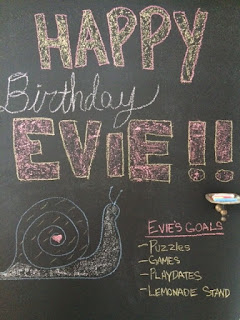 HAPPY
Birthday
EVIE!!
EVIE'S GOALS
- PUZZLES
- GAMES
- PLAYDATES
- LEMONADE STAND